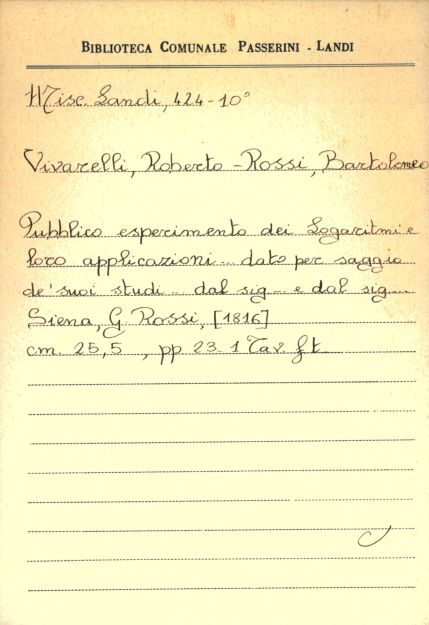 BIBLIOTECA COMUNALE PASSERINI - LANDI
Misc. Landi, 424-10°
Vivarelli, Roberto - Rossi, Bartolomeo
Pubblico esperimento dei Logaritmi e
loro applicazioni... dato per saggio
de' suoi studi... dal sig... e dal sig....
Siena, G. Rossi, [1816]
cm. 25,5 , pp 23-1 Tav. f.t.